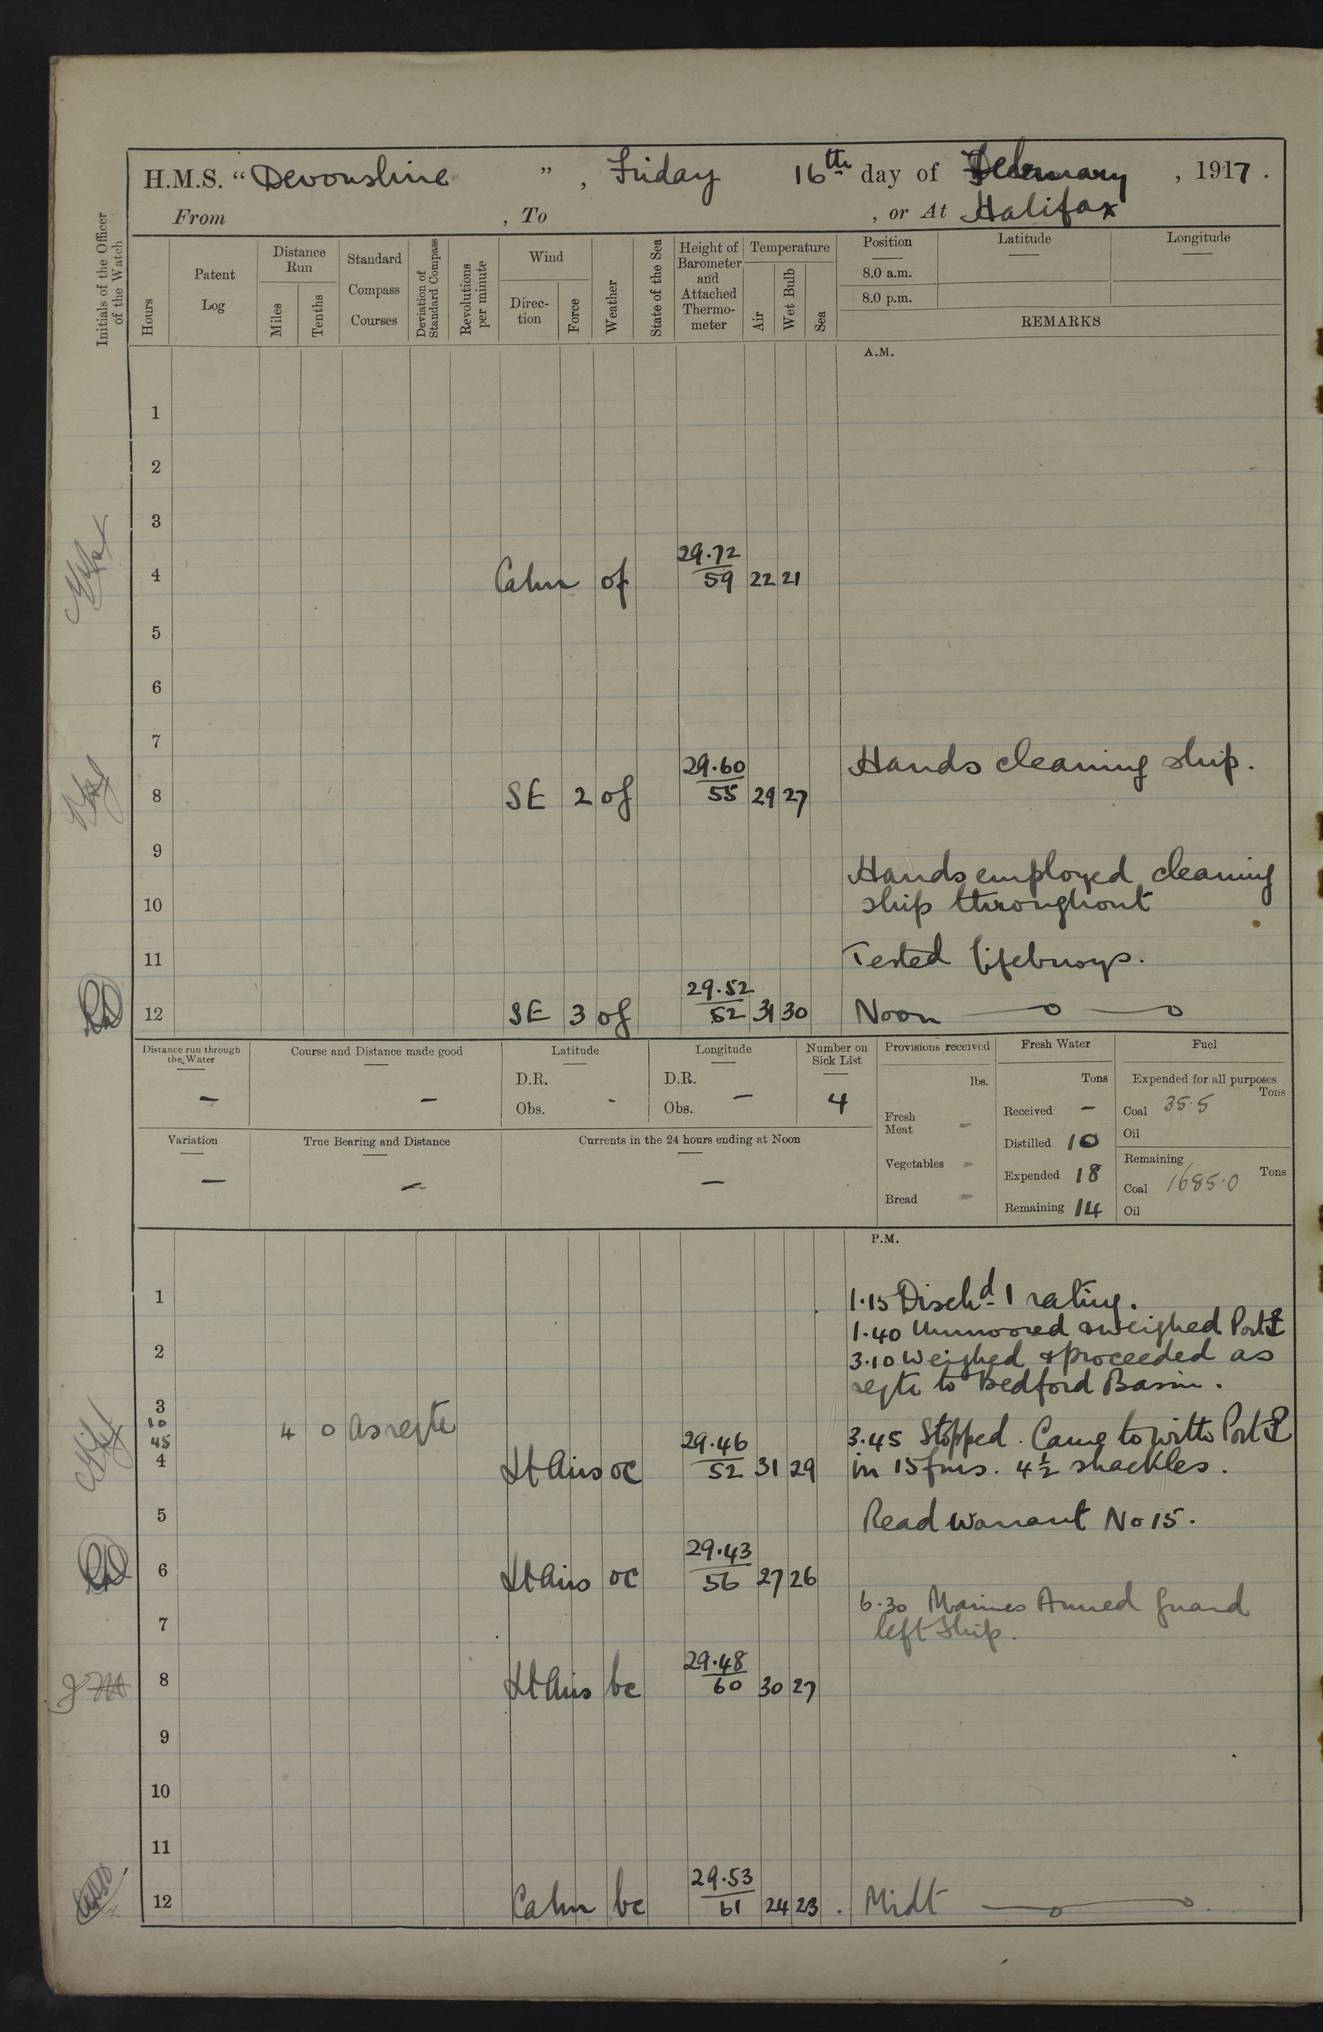 H.M.S. "Devonshire", Friday 16th day of February, 1917.
From , To , or At Halifax
Initials of the Officer of the Watch
Hours
Patent Log
Distance Run
Miles
Tenths
Standard Compass Courses
Deviation of Standard Compass
Revolutions per minute
Wind
Direc-tion
Force
Weather
State of the Sea
Height of Barometer and Attached Thermo-meter
Temperature
Air
Wet Bulb
Sea
Position
Latitude
Longitude
8.0 a.m.
8.0 p.m.
REMARKS
A.M.
1
2
3
29.72
4 Calm of 59 22 21
5
6
7
29.60 Hands cleaning ship.
8 SE 2 of 55 29 27
9
Hands employed cleaning
10 ship throughout
11 Tested lifebuoys.
29.52
12 SE 3 of 52 31 30 Noon
Distance run through the Water
–
Course and Distance made good
–
Latitude
D.R.
Obs. -
Longitude
D.R.
Obs. –
Number on Sick List
4
Provisions received
lbs.
Fresh Meat -
Vegetables -
Bread -
Fresh Water
Tons
Received –
Distilled 10
Expended 18
Remaining 14
Fuel
Expended for all purposes
Tons
Coal 35.5
Oil
Remaining
Tons
Coal 1685.0
Oil
Variation
–
True Bearing and Distance
–
Currents in the 24 hours ending at Noon
–
P.M.
1 1.15 Disch'd 1 rating.
1.40 Unmoored & weighed Port
2 3.10 Weighed & proceeded as
reqte to Bedford Basin.
3
10 4 0 As reqte
45 29.46 3.45 Stopped. Came to with Port
4 Lt Airs oc 52 31 29 in 15 fms. 4½ shackles.
5 Read Warrant No 15.
29.43
6 Lt Airs oc 56 27 26
6.30 Marines Armed Guard
7 left Ship.
29.48
8 Lt Airs bc 60 30 27
9
10
11
29.53
12 Calm bc 61 24 23 Midt